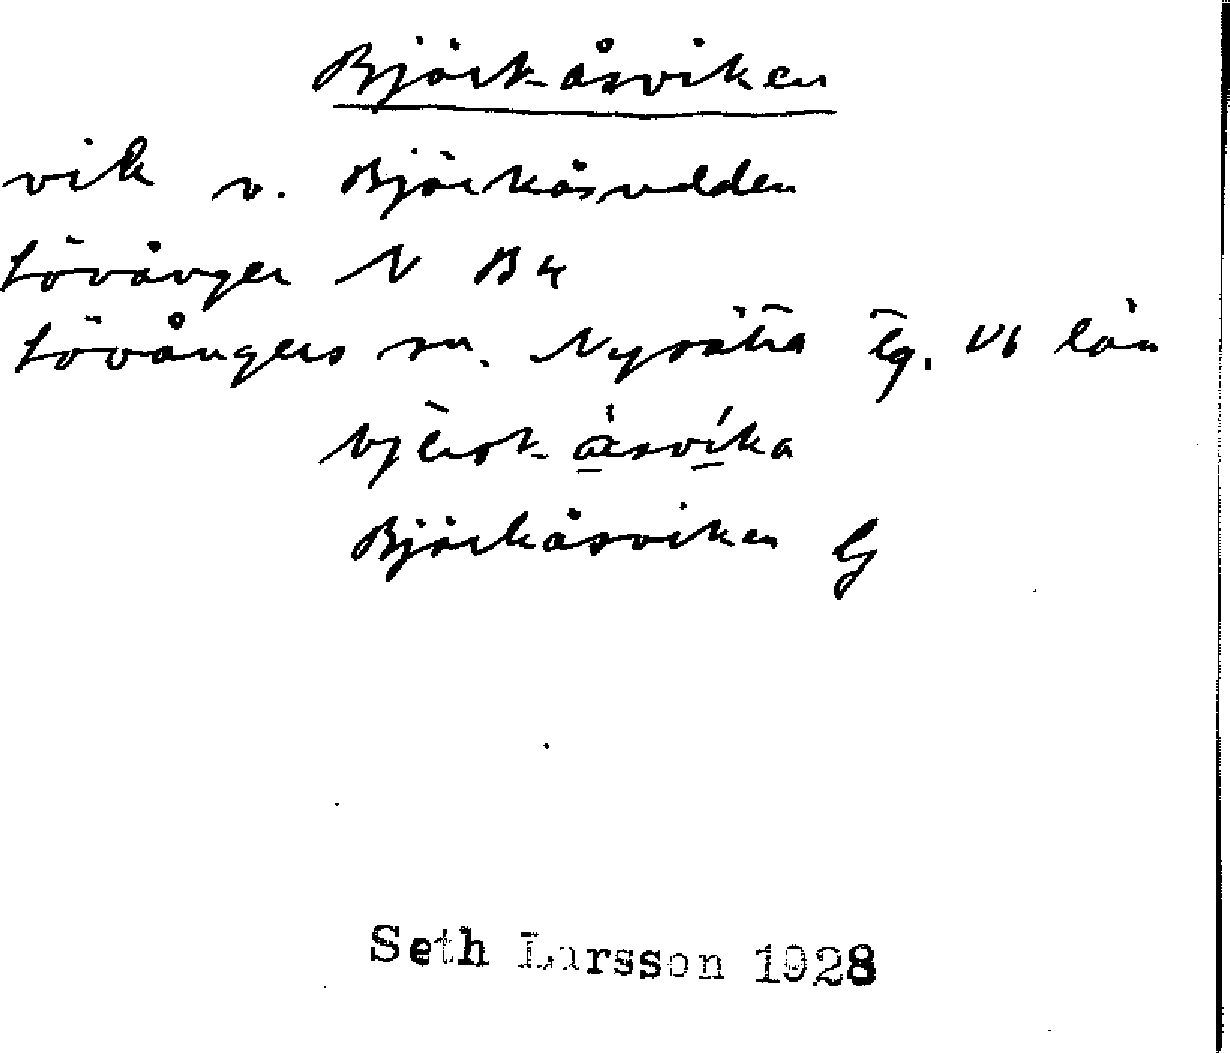 Björkåsviken
vik v. Björkåsudden
Lövånger N B4
Lövångers sn. Nysätra tg. Vb län
Björkåsviken G
Seth Larsson 1928